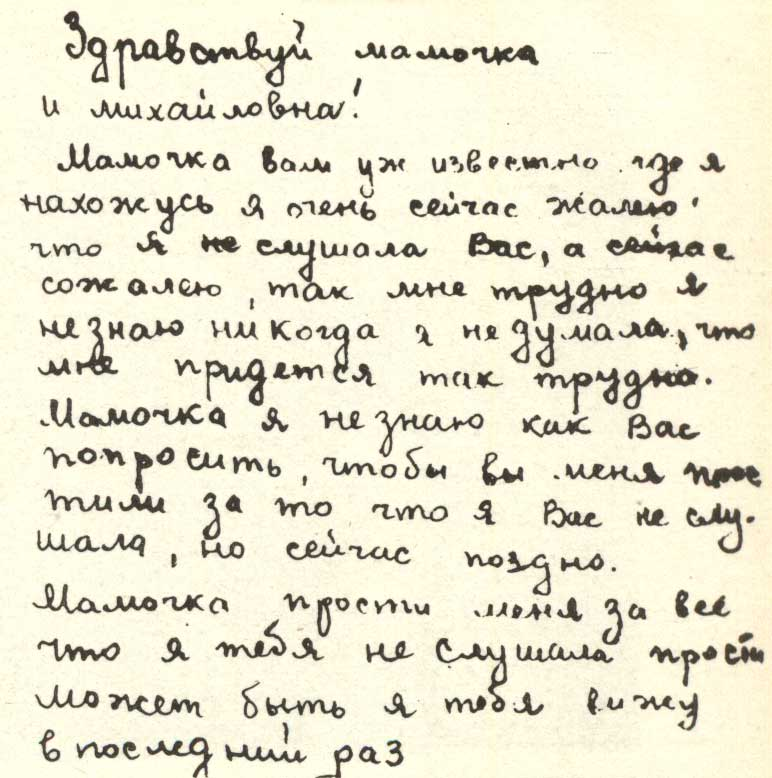 Здравствуй мамочка
и михайловна!
Мамочка вам уж известно где я
нахожусь я очень сейчас жалею
что я не слушала Вас, а сейчас
сожалею, так мне трудно я
не знаю никогда я не думала, что
мне придется так трудно.
Мамочка я не знаю как Вас
попросить, чтобы вы меня прос
тили за то что я Вас не слу-
шала, но сейчас поздно.
Мамочка прости меня за все
что я тебя не слушала прости
может быть я тебя вижу
в последний раз